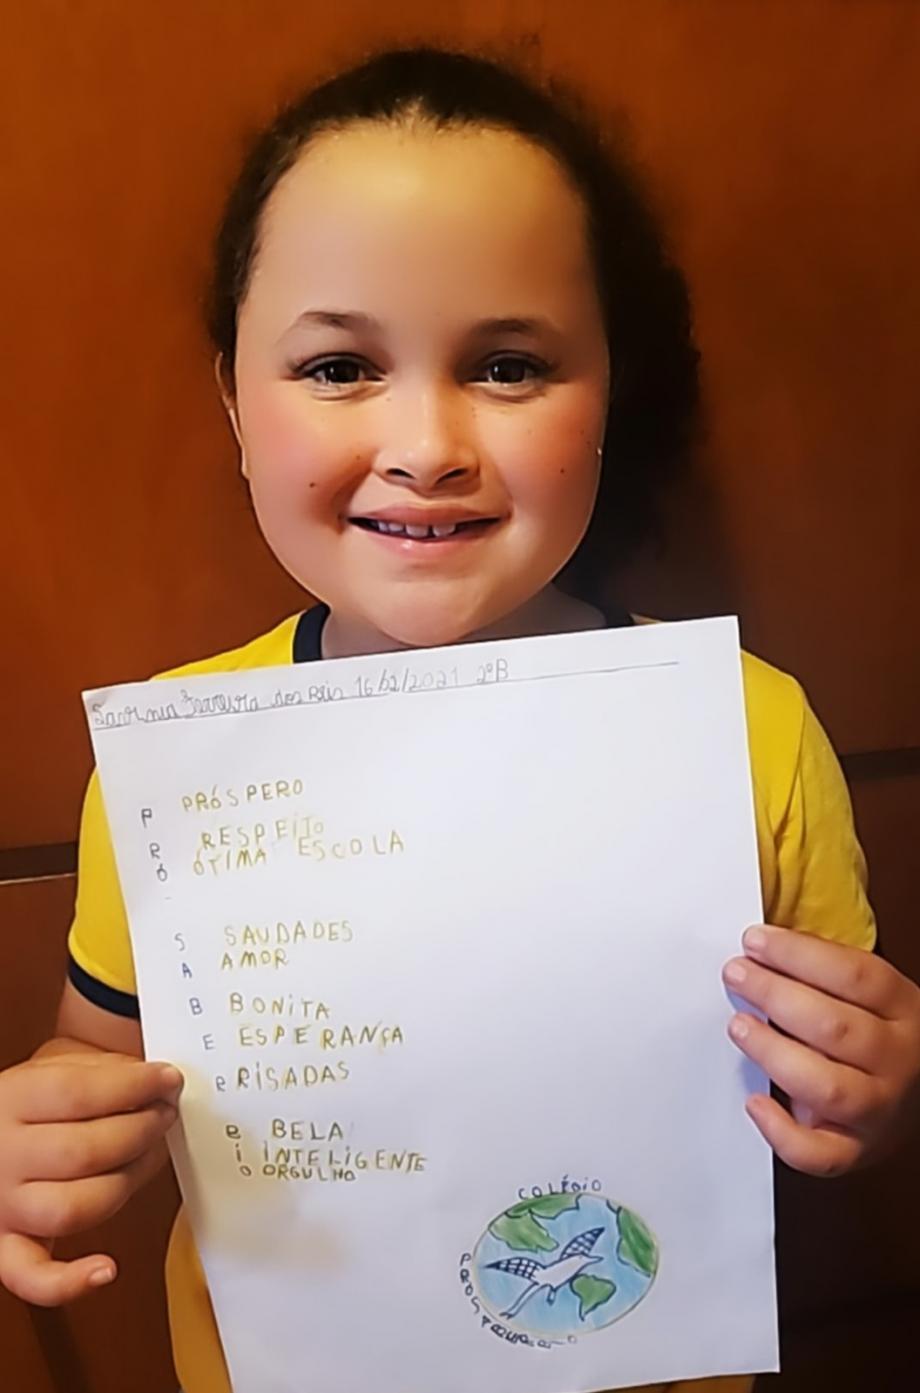 Ferreira dos Reis 16/02/2021 2ºB
P PRÓSPERO
R RESPEITO
Ó ÓTIMA ESCOLA
-
S SAUDADES
A AMOR
B BONITA
E ESPERANÇA
R RISADAS
e BELA
i INTELIGENTE
o ORGULHO
COLÉGIO